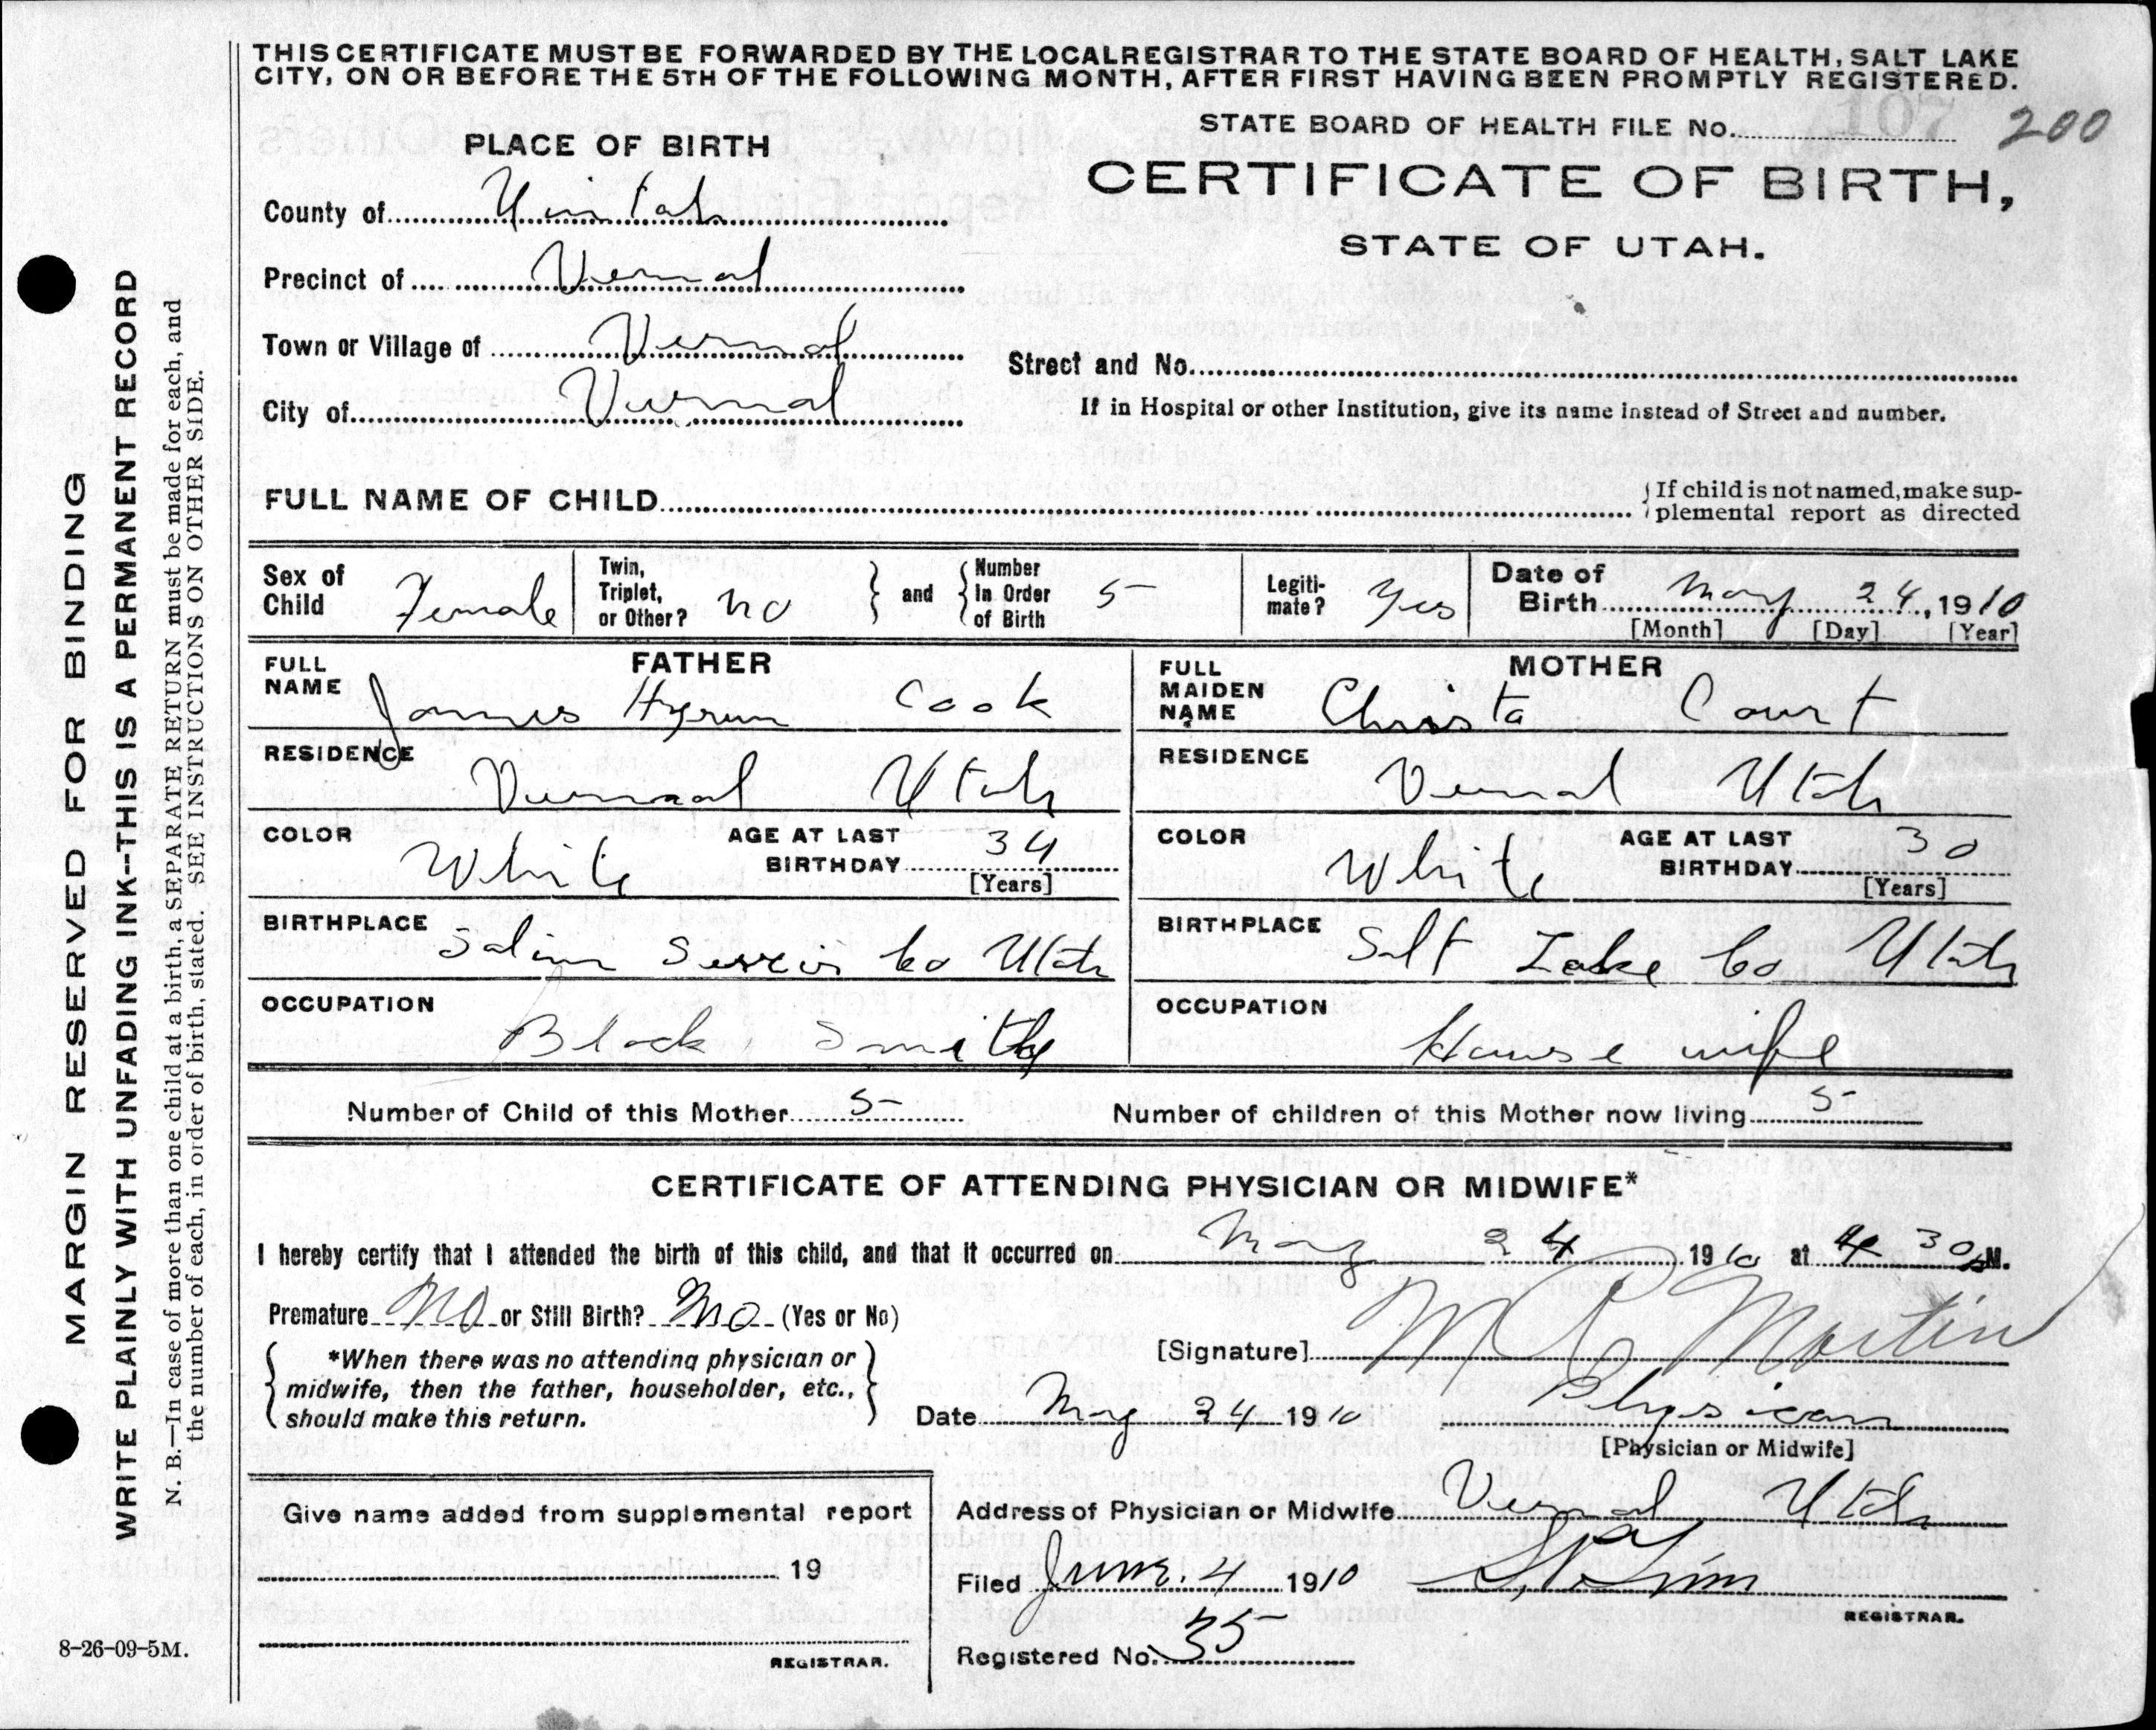 THIS CERTIFICATE MUST BE FORWARDED BY THE LOCAL REGISTRAR TO THE STATE BOARD OF HEALTH, SALT LAKE
CITY, ON OR BEFORE THE 5TH OF THE FOLLOWING MONTH, AFTER FIRST HAVING BEEN PROMPTLY REGISTERED.
STATE BOARD OF HEALTH FILE No. 107 200
PLACE OF BIRTH
CERTIFICATE OF BIRTH,
STATE OF UTAH.
County of Uintah
Precinct of Vernal
Town or Village of Vernal
Street and No.
City of Vernal
If in Hospital or other Institution, give its name instead of Street and number.
FULL NAME OF CHILD
If child is not named, make sup-
plemental report as directed
Sex of Child Female
Twin, Triplet, or Other? no
and
Number In Order of Birth 5
Legiti-mate? Yes
Date of Birth May 24, 1910
[Month] [Day] [Year]
FATHER
FULL NAME James Hyrum Cook
MOTHER
FULL MAIDEN NAME Christa Court
RESIDENCE Vernal Utah
RESIDENCE Vernal Utah
COLOR White AGE AT LAST BIRTHDAY 34 [Years]
COLOR White AGE AT LAST BIRTHDAY 30 [Years]
BIRTHPLACE Salina Sevier Co Utah
BIRTHPLACE Salt Lake Co Utah
OCCUPATION Black Smith
OCCUPATION House wife
Number of Child of this Mother 5
Number of children of this Mother now living 5
CERTIFICATE OF ATTENDING PHYSICIAN OR MIDWIFE*
I hereby certify that I attended the birth of this child, and that it occurred on May 24 1910 at 4 30 M.
Premature No or Still Birth? No (Yes or No)
*When there was no attending physician or
midwife, then the father, householder, etc.,
should make this return.
[Signature] M C Martin
Date May 24 1910 Physician
[Physician or Midwife]
Give name added from supplemental report
19
REGISTRAR.
Address of Physician or Midwife Vernal Utah
Filed June 4 1910
REGISTRAR.
Registered No. 35
8-26-09-5M.
MARGIN RESERVED FOR BINDING
WRITE PLAINLY WITH UNFADING INK--THIS IS A PERMANENT RECORD
N. B.—In case of more than one child at a birth, a SEPARATE RETURN must be made for each, and
the number of each, in order of birth, stated. SEE INSTRUCTIONS ON OTHER SIDE.